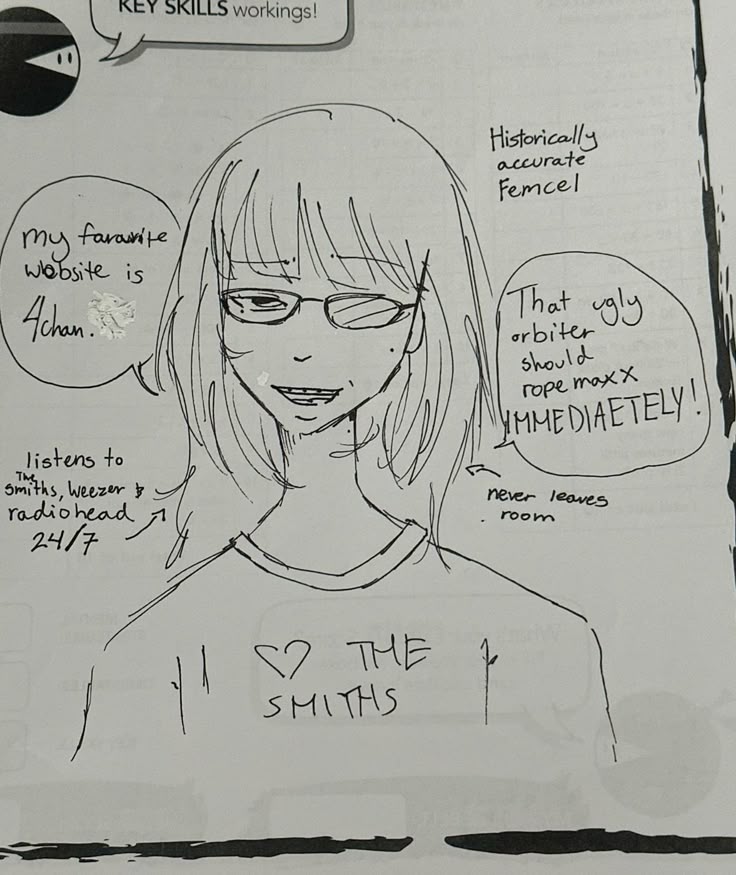 KEY SKILLS workings!
Historically
accurate
Femcel
my favourite
website is
4chan.
That ugly
orbiter
should
ropemaxx
IMMEDIAETELY!
listens to
The
smiths, weezer &
radiohead
24/7
never leaves
room
I ♡ THE
SMITHS